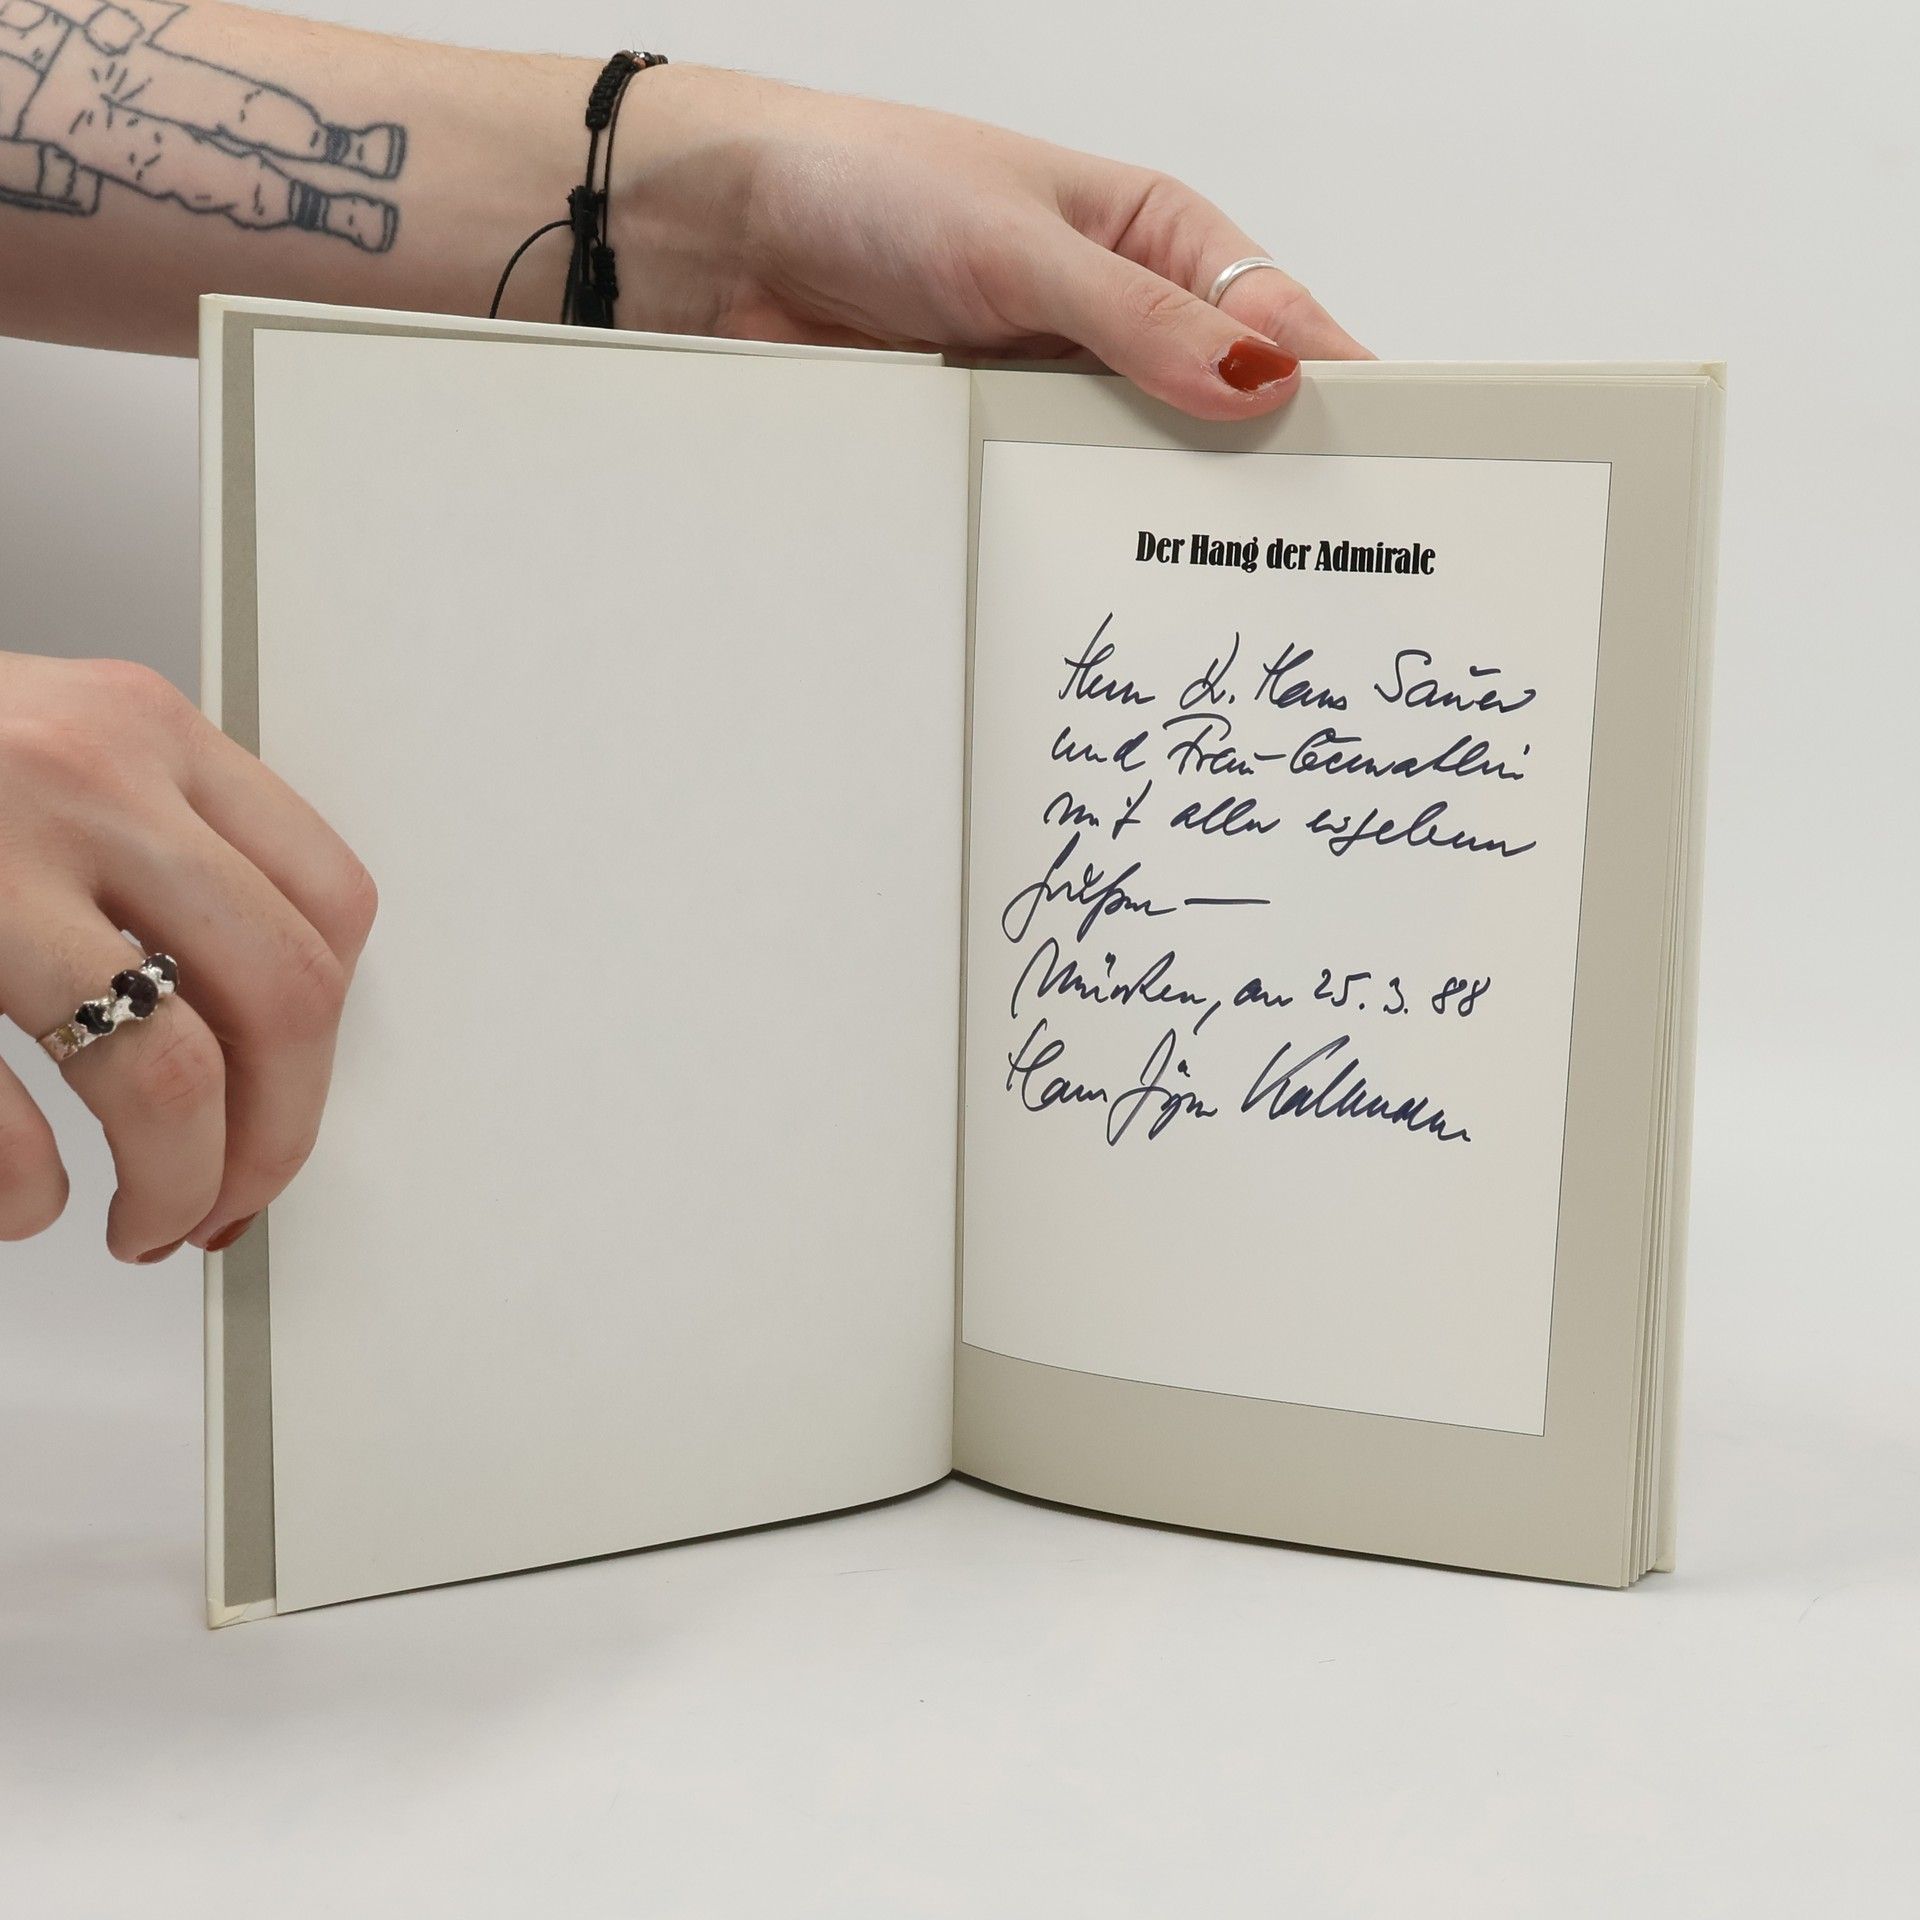 Der Hang der Admirale
Herrn K. Hans Sauer
und Frau Gemahlin
mit allen ergebenen
Grüßen —
München, am 25. 3. 88
Hans Jörn Kallmann